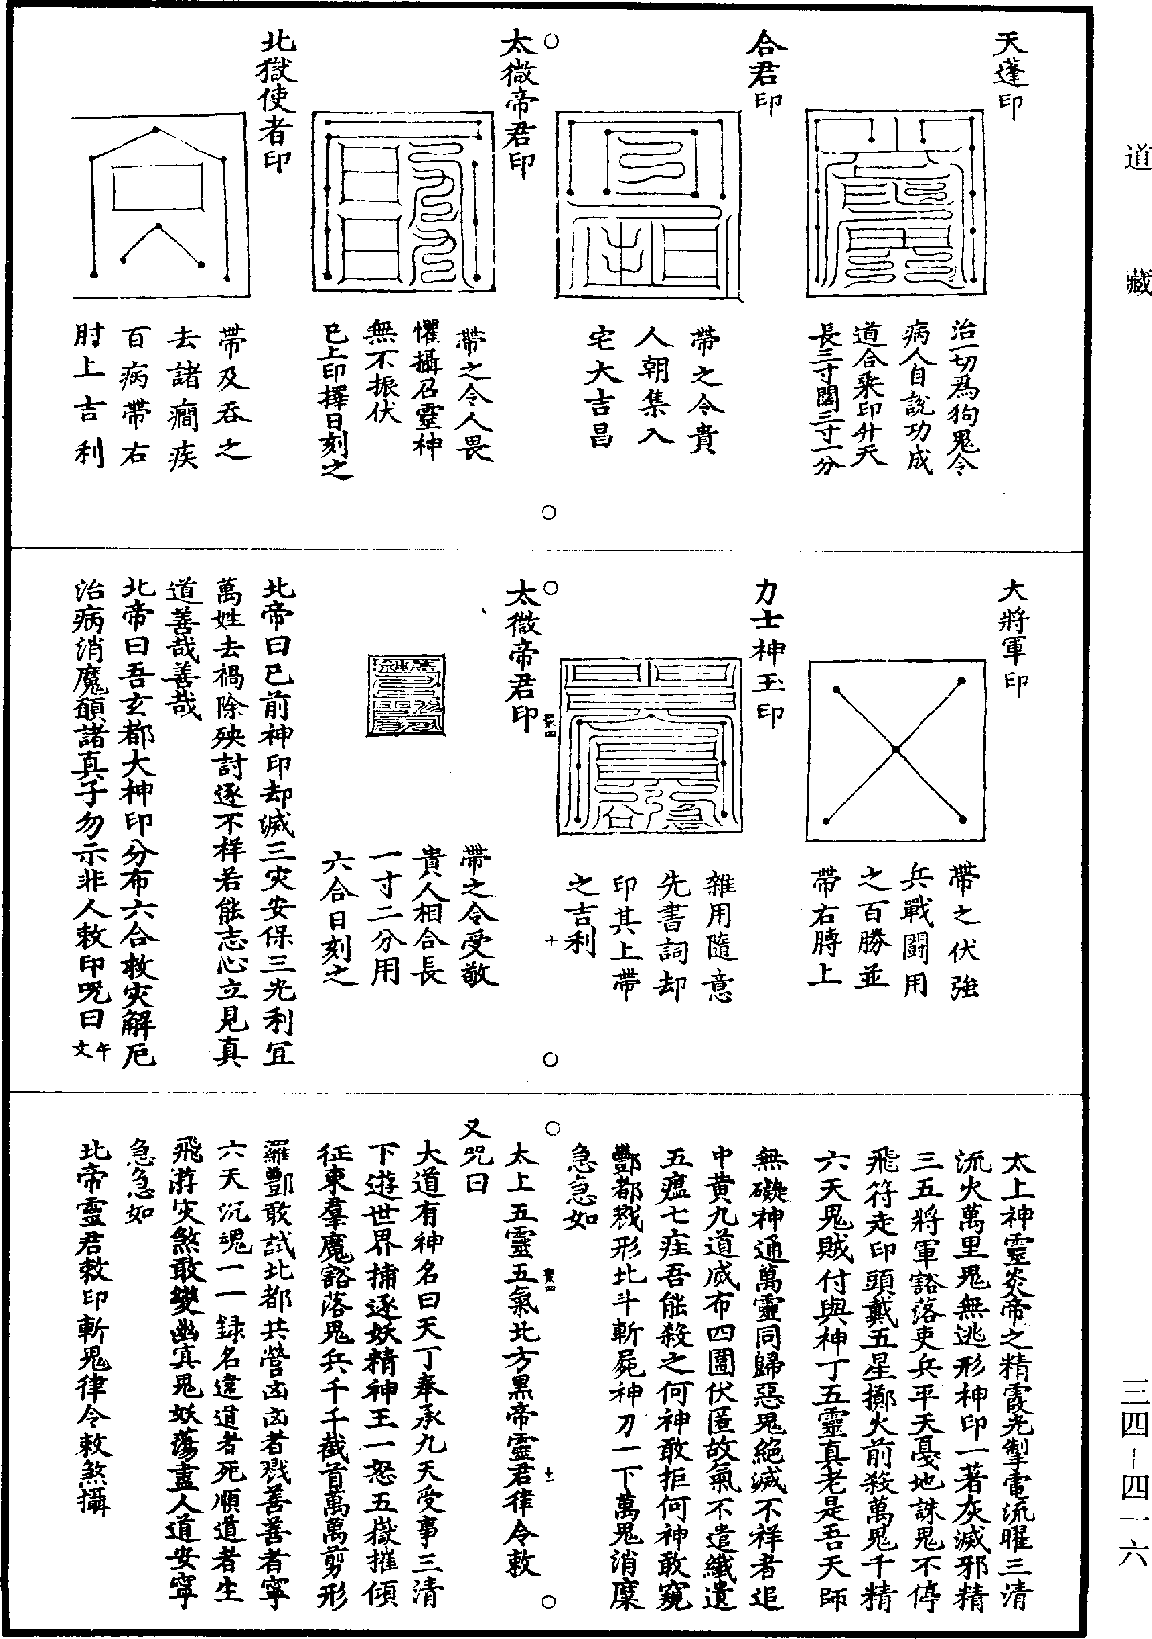 道藏
天蓬印
治一切爲狗鬼令
病人自說功成
道合乘印升天
長三寸闊三寸一分
合君印
帶之令貴
人朝集入
宅大吉昌
太微帝君印
帶之令人畏
懼攝召靈神
無不振伏
已上印擇日刻之
北獄使者印
帶及吞之
去諸癎疾
百病帶右
肘上吉利
大將軍印
帶之伏強
兵戰鬪用
之百勝並
帶右膊上
力士神王印
雜用隨意
先書詞却
印其上帶
之吉利
太微帝君印
帶之令受敬
貴人相合長
一寸二分用
六合日刻之
北帝曰已前神印却滅三灾安保三光利宜
萬姓去禍除殃討逐不祥若能志心立見真
道善哉善哉
北帝曰吾玄都大神印分布六合救灾解厄
治病消魔願諸真子勿示非人敕印呪曰午文
太上神靈炎帝之精霞光掣電流曜三清
流火萬里鬼無逃形神印一著灰滅邪精
三五將軍豁落吏兵平天憂地誅鬼不停
飛符走印頭戴五星擲火前殺萬鬼千精
六天鬼賊付與神丁五靈真老是吾天師
無礙神通萬靈同歸惡鬼絕滅不祥者追
中黃九道咸布四圍伏匿故氣不遣纖遺
五瘟七疰吾能殺之何神敢拒何神敢窺
酆都戮形北斗斬屍神刀一下萬鬼消糜
急急如
太上五靈五氣北方黑帝靈君律令敕
又呪曰
大道有神名曰天丁奉承九天受事三清
下遊世界捕逐妖精神王一怒五嶽摧傾
征東羣魔豁落鬼兵千千截首萬萬剪形
羅酆敢試北都共營凶凶者戮善善者寧
六天沉魂一一錄名違道者死順道者生
飛游灾煞敢變幽冥鬼妖蕩盡人道安寧
急急如
北帝靈君敕印斬鬼律令敕煞攝
三四-四一六